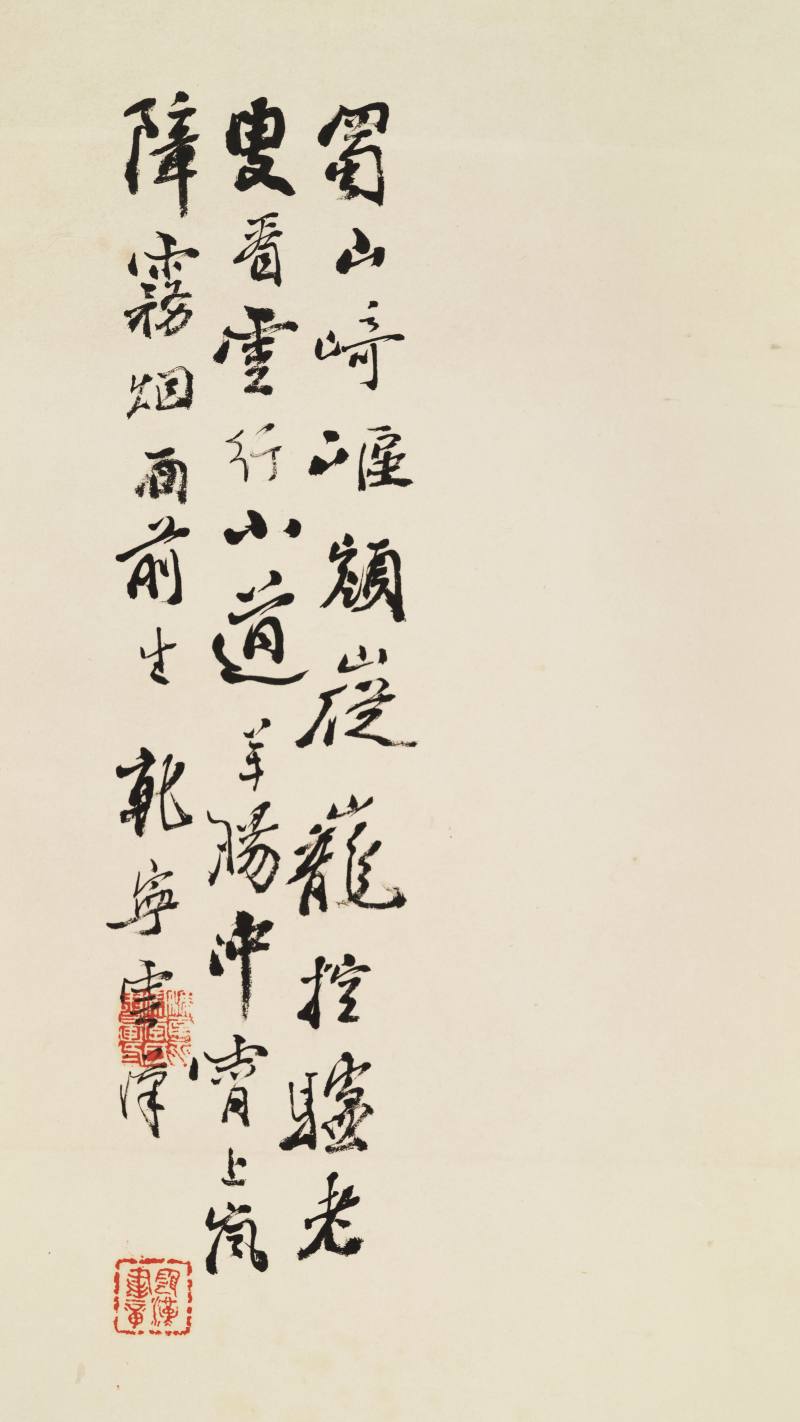 蜀山崎嶇嵸巃控驢老
叟看雲行小道羊腸沖霄上嵐
障霧烟面前生 乾寧雲漢